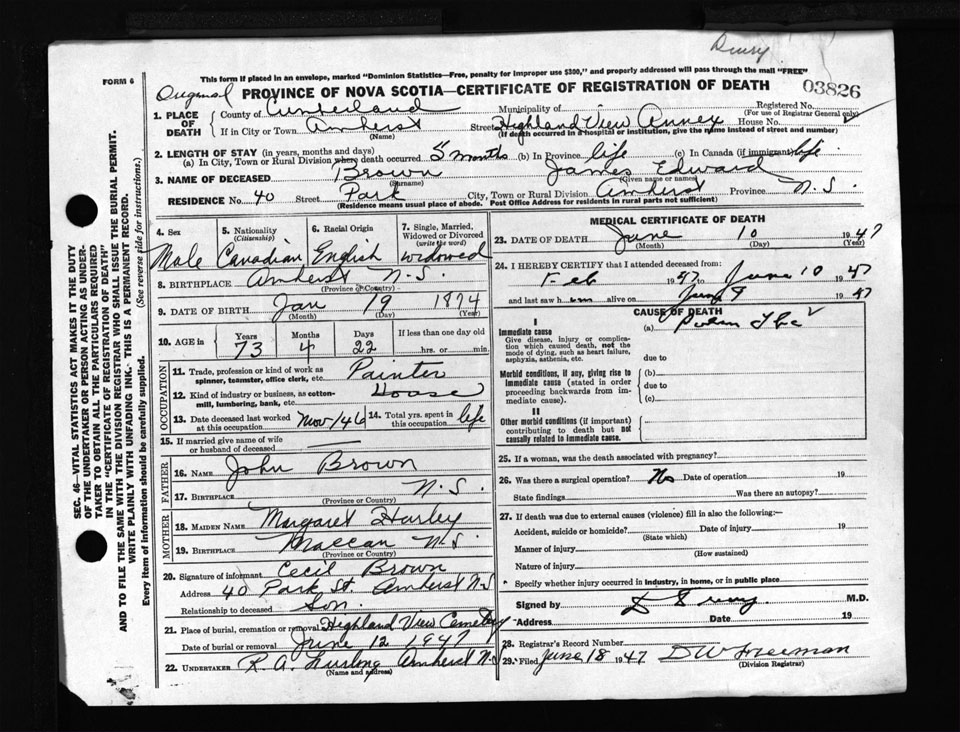 Drury
FORM 6
This form if placed in an envelope, marked "Dominion Statistics—Free, penalty for improper use $300," and properly addressed will pass through the mail "FREE"
Original PROVINCE OF NOVA SCOTIA—CERTIFICATE OF REGISTRATION OF DEATH 03826
1. PLACE OF DEATH
County of Cumberland Municipality of Registered No.
(For use of Registrar General only)
If in City or Town Amherst Street Highland View Annex House No.
(Name) (If death occurred in a hospital or institution, give the name instead of street and number)
2. LENGTH OF STAY (in years, months and days)
(a) In City, Town or Rural Division where death occurred 5 months (b) In Province life (c) In Canada (if immigrant) life
3. NAME OF DECEASED Brown James Edward
(Surname) (Given name or names)
RESIDENCE No. 40 Street Park City, Town or Rural Division Amherst Province N.S.
(Residence means usual place of abode. Post Office Address for residents in rural parts not sufficient)
4. Sex 5. Nationality (Citizenship) 6. Racial Origin 7. Single, Married, Widowed or Divorced (write the word)
Male Canadian English widowed
8. BIRTHPLACE Amherst N.S.
(Province or Country)
9. DATE OF BIRTH Jan 19 1874
(Month) (Day) (Year)
10. AGE in Years Months Days If less than one day old
73 4 22 hrs. or min.
OCCUPATION
11. Trade, profession or kind of work as spinner, teamster, office clerk, etc. Painter
12. Kind of industry or business, as cotton-mill, lumbering, bank, etc. House
13. Date deceased last worked at this occupation Nov/46 14. Total yrs. spent in this occupation life
15. If married give name of wife or husband of deceased
FATHER
16. NAME John Brown
17. BIRTHPLACE N.S.
(Province or Country)
MOTHER
18. MAIDEN NAME Margaret Harley
19. BIRTHPLACE Maccan N.S.
(Province or Country)
20. Signature of informant Cecil Brown
Address 40 Park St. Amherst N.S.
Relationship to deceased Son.
21. Place of burial, cremation or removal Highland View Cemetery
Date of burial or removal June 12 1947
22. UNDERTAKER R. A. Amherst N.S.
(Name and address)
MEDICAL CERTIFICATE OF DEATH
23. DATE OF DEATH June 10 1947
(Month) (Day) (Year)
24. I HEREBY CERTIFY that I attended deceased from:
Feb 1947 June 10 1947
and last saw him alive on June 9 1947
CAUSE OF DEATH
I
Immediate cause (a) Pulm Tbc
Give disease, injury or complication which caused death, not the mode of dying, such as heart failure, asphyxia, asthenia, etc.
due to
Morbid conditions, if any, giving rise to immediate cause (stated in order proceeding backwards from immediate cause).
(b)
due to
(c)
II
Other morbid conditions (if important) contributing to death but not causally related to immediate cause.
25. If a woman, was the death associated with pregnancy?
26. Was there surgical operation? No Date of operation 19
State findings Was there an autopsy?
27. If death was due to external causes (violence) fill in also the following:—
Accident, suicide or homicide? Date of injury 19
(State which)
Manner of injury
(How sustained)
Nature of injury
Specify whether injury occurred in industry, in home, or in public place
Signed by M.D.
Address Date 19
28. Registrar's Record Number
29. Filed June 18 1947 D W Freeman
(Division Registrar)
SEC. 46—VITAL STATISTICS ACT MAKES IT THE DUTY
OF THE UNDERTAKER OR PERSON ACTING AS UNDER-
TAKER TO OBTAIN ALL THE PARTICULARS REQUIRED
IN THE "CERTIFICATE OF REGISTRATION OF DEATH"
AND TO FILE THE SAME WITH THE DIVISION REGISTRAR WHO SHALL ISSUE THE BURIAL PERMIT.
WRITE PLAINLY WITH UNFADING INK. THIS IS A PERMANENT RECORD.
(See reverse side for instructions.)
Every item of information should be carefully supplied.